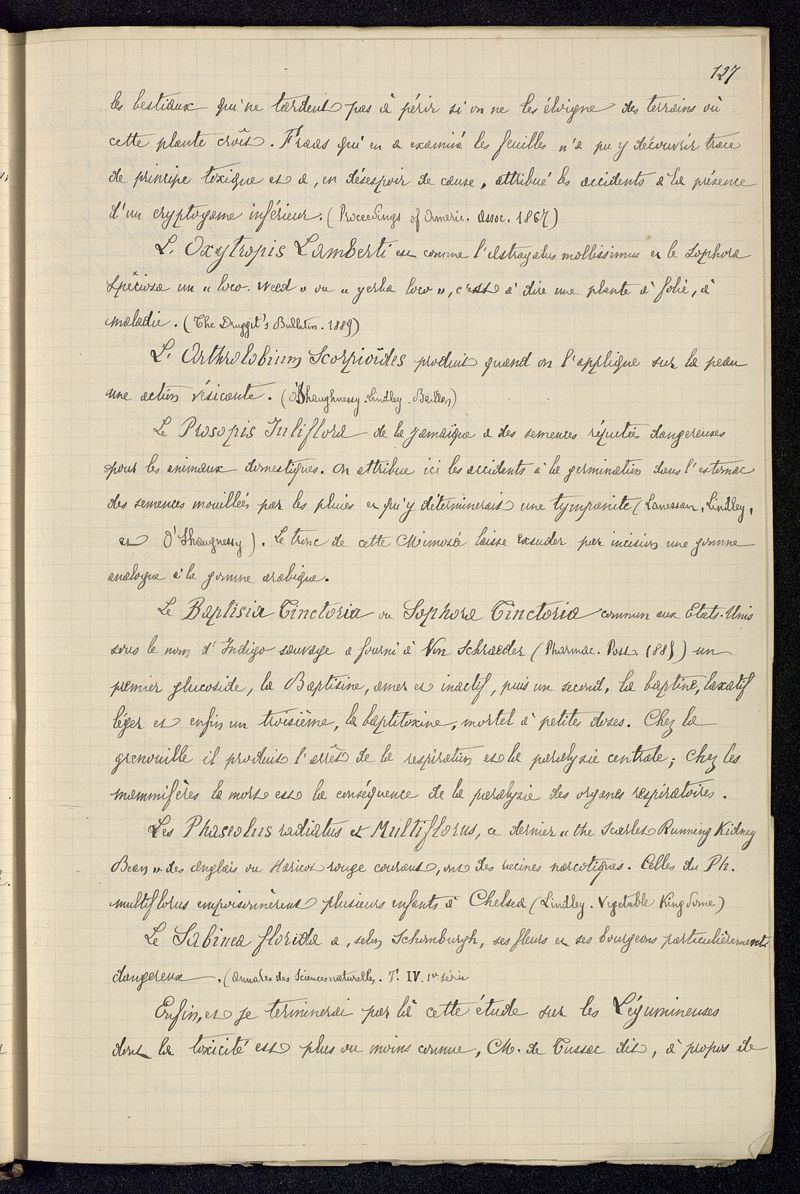 127
les bestiaux qui ne tardent pas à périr si on ne les éloigne des terrains où
cette plante croît. Fraas qui en a examiné les feuilles n'a pu y découvrir trace
de principe toxique et a, en désespoir de cause, attribué les accidents à la présence
d'un cryptogame inférieur. (Proceedings of Americ. Assoc. 1867)
L'Oxytropis Lamberti est comme l'Astragalus mollissimus et le Sophora
Speciosa un "loco-weed" ou "yerba loco", c'est à dire une plante à folie, à
maladie. (The Druggit's Bulletin. 1889)
L'Arthrolobium Scorpioïdes produit quand on l'applique sur la peau
une action vésicante. (O'Shaughnessy. Lindley. Baillon)
Le Prosopis Juliflora de la Jamaïque a des semences réputées dangereuses
pour les animaux domestiques. On attribue ici les accidents à la germination dans l'estomac
des semences mouillées par les pluies et qu'y déterminerait une tympanite (Lanessan, Lindley,
et O'Shaugnessy). Le tronc de cette Mimosée laisse exsuder par incision une gomme
analogue à la gomme arabique.
Le Baptisia Tinctoria ou Sophora Tinctoria commun aux Etats-Unis
sous le nom d'Indigo sauvage a fourni à Von Schraeder (Pharmac. Post. 1885) un
premier glucoside, la Baptisine, amer et inactif, puis un second, la baptine, laxatif
léger et enfin un troisième, la baptitoxine, mortel à petites doses. Chez la
grenouille il produit l'arrêt de la respiration et la paralysie centrale; Chez les
mammifères la mort est la conséquence de la paralysie des organes respiratoires.
Les Phaseolus radiatus et Multiflorus, ce dernier "the Scarlet Running Kidney
Bean" des anglais ou Haricot rouge courant, ont des racines narcotiques. Celles du Ph.
multiflorus empoisonnèrent plusieurs enfants à Chelsea (Lindley. Vegetable Kingdome)
Le Sabinea florida a, selon Schomburgh, ses fleurs et ses bourgeons particulièrement
dangereux. (Annales des Sciences naturelles. T. IV. 1re série
Enfin, et je terminerai par là cette étude sur les Légumineuses
dont la toxicité est plus ou moins connue, M. de Tussac dit, à propos de